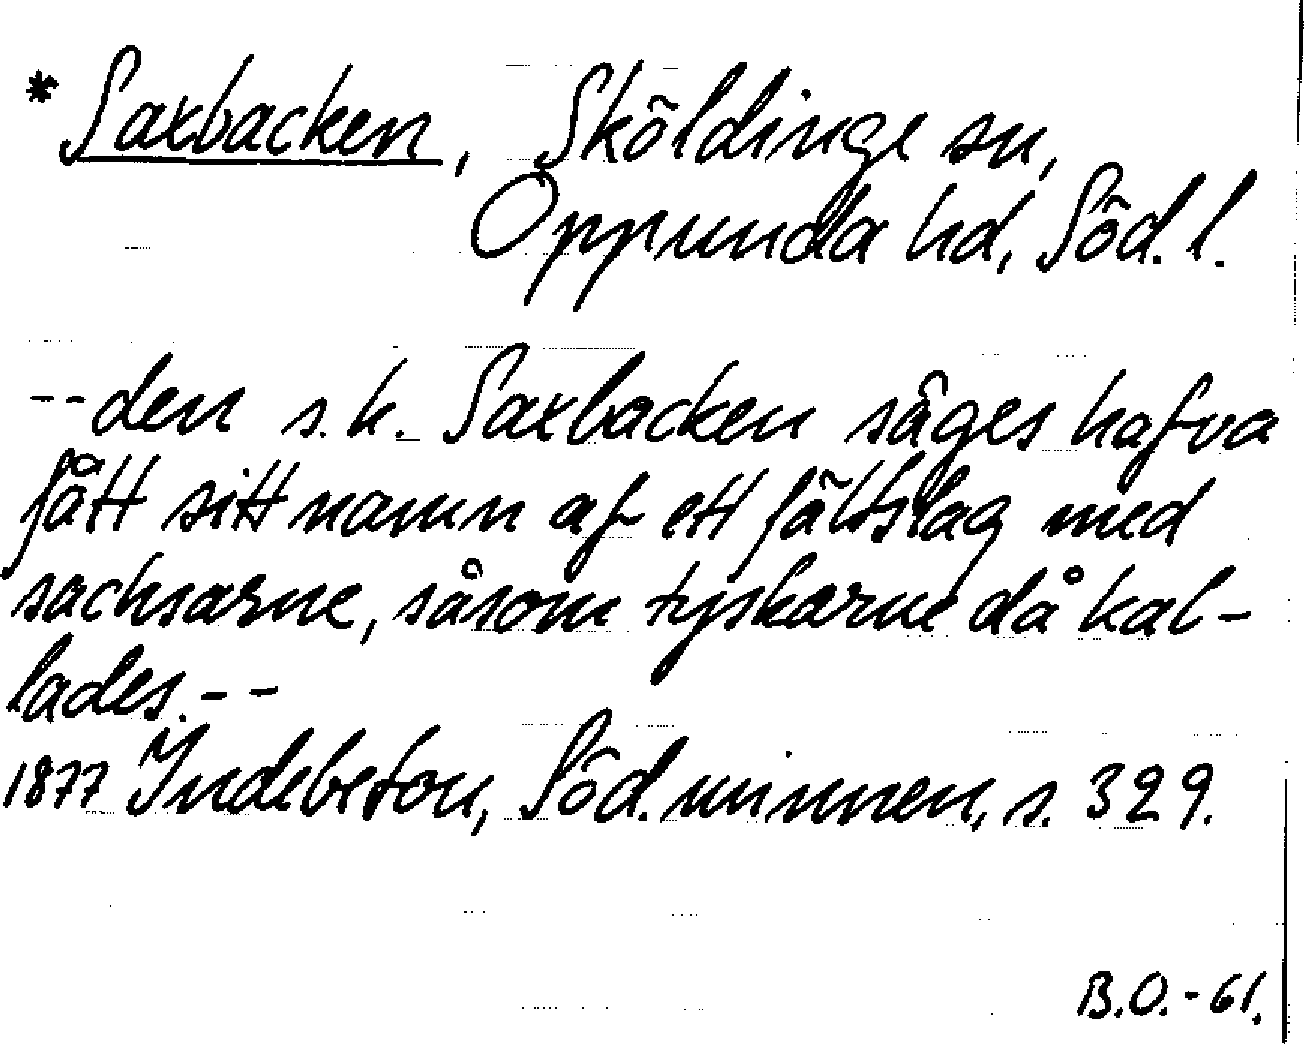 * Saxbacken, Sköldinge sn,
Oppunda hd, Söd. l.
-- den s.k. Saxbacken säges hafva
fått sitt namn af ett fältslag med
sachsarne, såsom tyskarne då kal-
lades. --
1877 Indebetou, Söd. minnen, s. 329.
B.O. - 61.